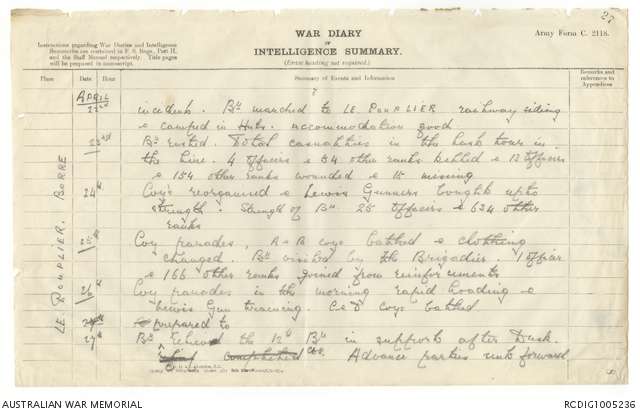 27
WAR DIARY
or
INTELLIGENCE SUMMARY.
(Erase heading not required.)
Army Form C. 2118.
Instructions regarding War Diaries and Intelligence
Summaries are contained in F. S. Regs., Part II.
and the Staff Manual respectively. Title pages
will be prepared in manuscript.
Place
Date
Hour
Summary of Events and Information
Remarks and
references to
Appendices
LE. POUPLIER. BORRE
APRIL
22nd
incident. Bn marched to LE POUPLIER railway siding
& camped in Huts. accommodation good
23rd
Bn rested. Total casualties in the last tour in
the line. 4 officers & 54 other ranks killed & 12 officers
& 154 other ranks wounded & 15 missing
24th
Coys reorganised & Lewis Gunners brought up to
strength. Strength of Bn 25 officers & 634 other
ranks
25th
Coy parades, A & B coys bathed & clothing
changed. Bn visited by the Brigadier. 1 officer
& 166 other ranks joined from reinforcements
26th
Coy parades in the morning rapid loading &
Lewis Gun training. C & D coys bathed
prepared to
27th
Bn relieved the 12th Bn in support after Dusk.
completed Advance parties sent forward
AUSTRALIAN WAR MEMORIAL
RCDIG1005236